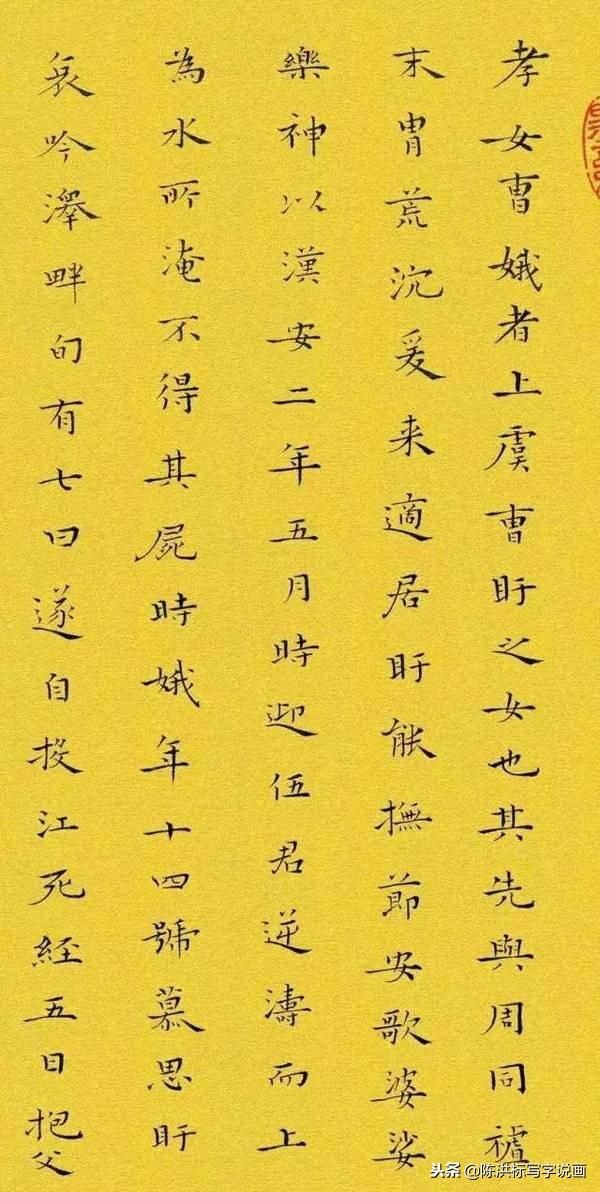 孝女曹娥者上虞曹盱之女也其先與周同禇
末胄荒沉爰来適居盱能撫節安歌婆娑
樂神以漢安二年五月時迎伍君逆濤而上
為水所淹不得其屍時娥年十四號慕思盱
哀吟澤畔旬有七日遂自投江死經五日抱父
头条 @陈洪标写字说画